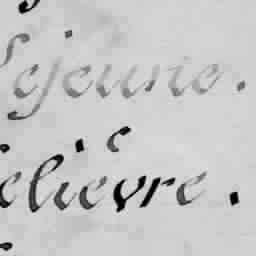 Lejeune.
elièvre.